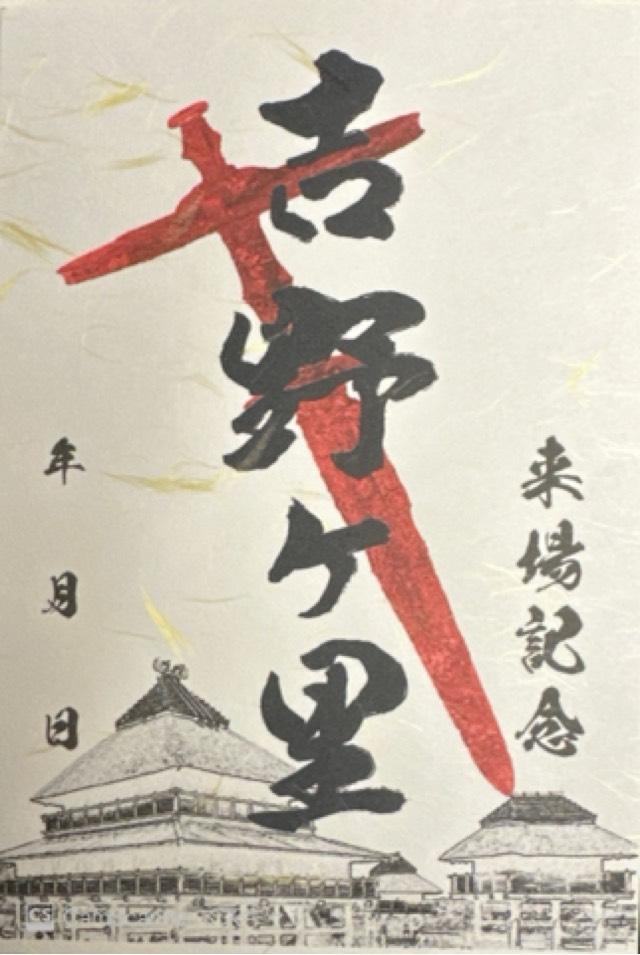 来場記念
吉野ヶ里
年 月 日